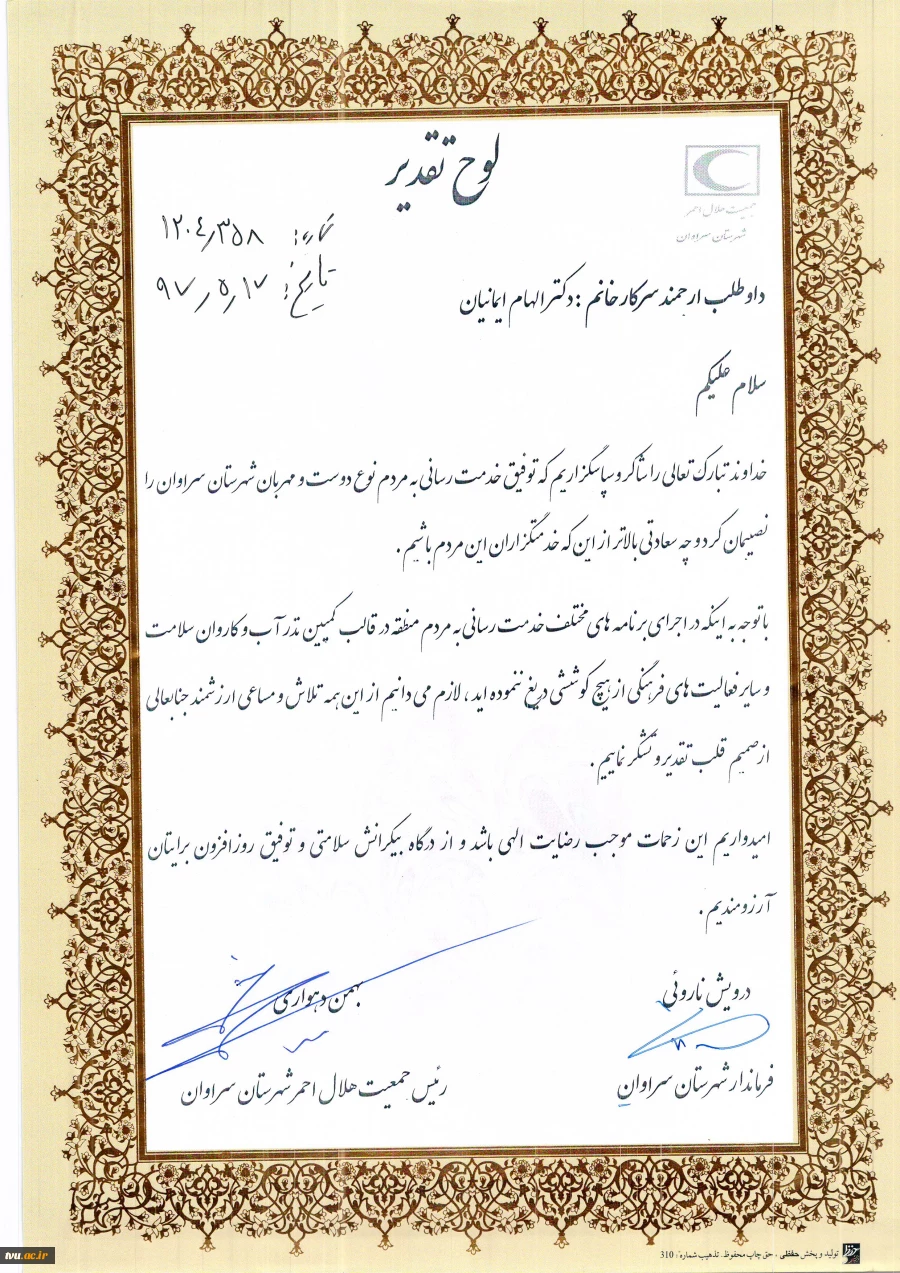 لوح تقدیر
جمعیت هلال احمر
شهرستان سراوان
شماره: ۱۲۰۴٫۳۵۸
تاریخ: ۹۷٫۵٫۱۷
داوطلب ارجمند سرکار خانم : دکتر الهام ایمانیان
سلام علیکم
خداوند تبارک تعالی را شاکر و سپاسگزاریم که توفیق خدمت رسانی به مردم نوع دوست و مهربان شهرستان سراوان را
نصیبمان کرد و چه سعادتی بالاتر از این که خدمتگزاران این مردم باشیم .
با توجه به اینکه در اجرای برنامه های مختلف خدمت رسانی به مردم منطقه در قالب کمپین نذر آب و کاروان سلامت
و سایر فعالیت های فرهنگی از هیچ کوششی دریغ ننموده اید ، لازم می دانیم از این همه تلاش و مساعی ارزشمند جنابعالی
از صمیم قلب تقدیر و تشکر نماییم .
امیدواریم این زحمات موجب رضایت الهی باشد و از درگاه بیکرانش سلامتی و توفیق روزافزون برایتان
آرزومندیم .
درویش ناروئی
فرماندار شهرستان سراوان
بهمن دهواری
رئیس جمعیت هلال احمر شهرستان سراوان
تولید و پخش حفظی ، حق چاپ محفوظ. تذهیب شماره: 310
tvu.ac.ir